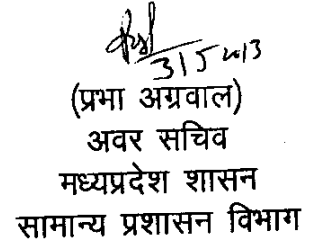 31 5 2013
(प्रभा अग्रवाल)
अवर सचिव
मध्यप्रदेश शासन
सामान्य प्रशासन विभाग